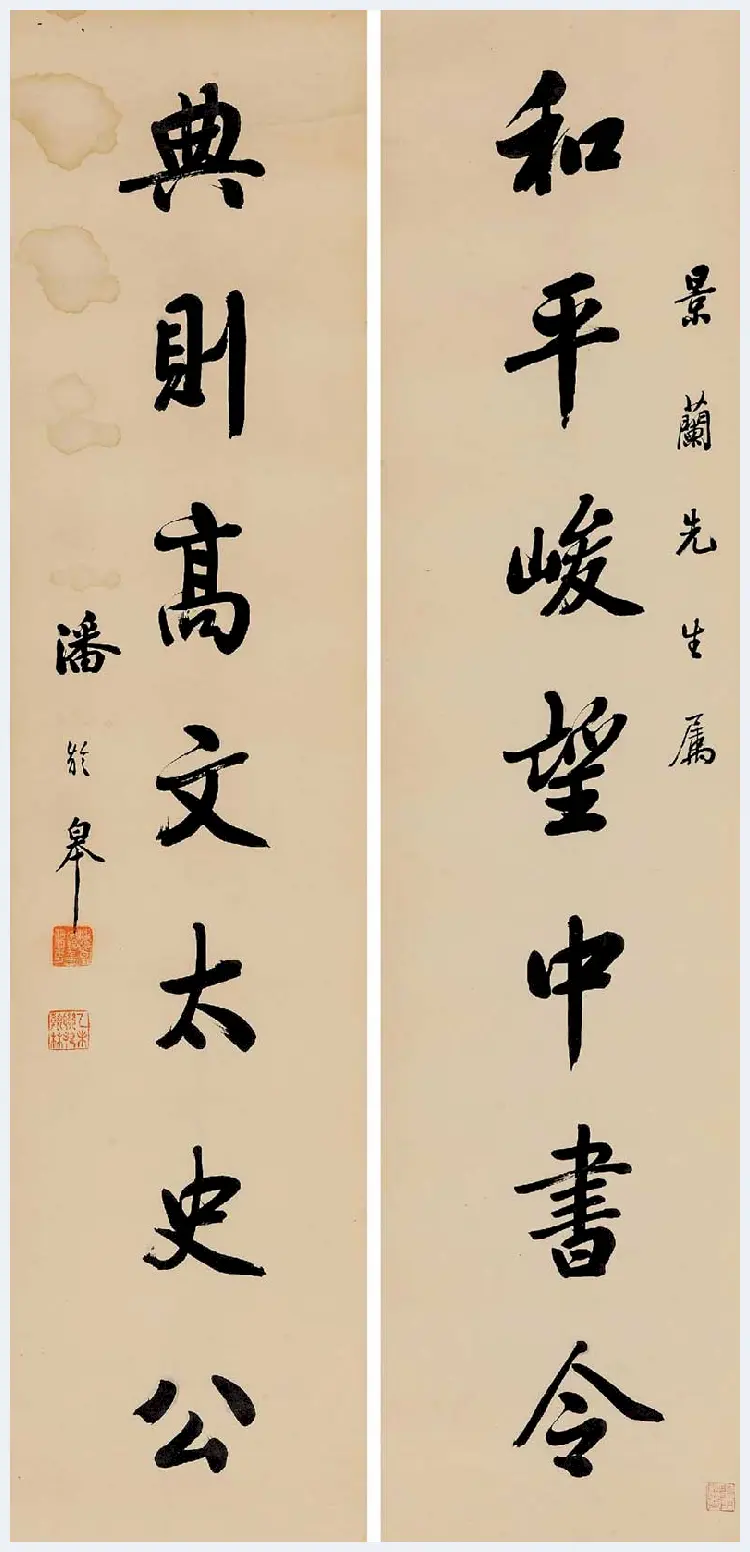 景蘭先生屬
和平峻望中書令
典則高文太史公
潘齡皋